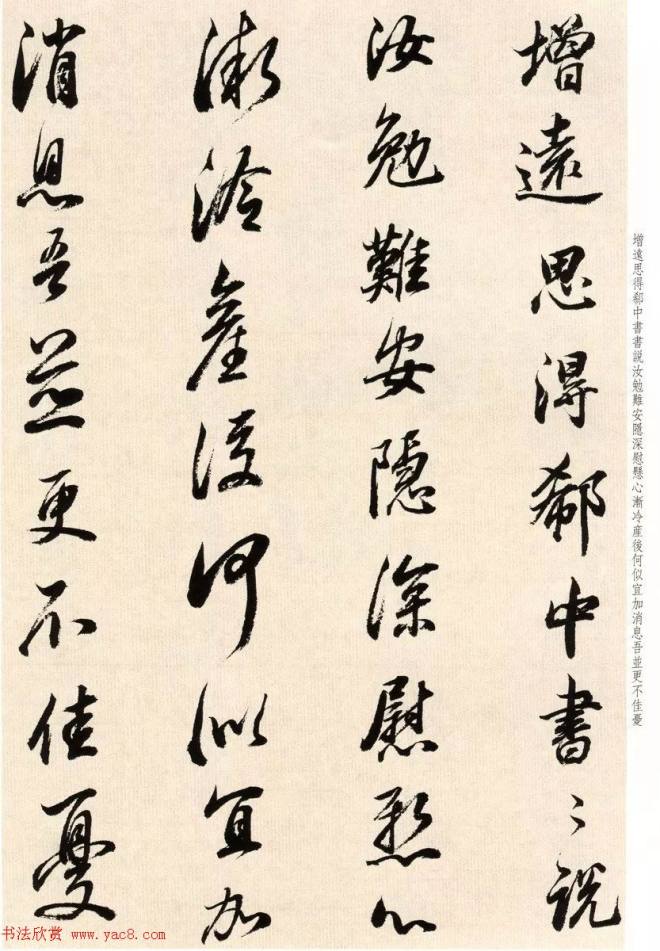 增遠思得郗中書〻説
汝勉難安隱深慰懸心
漸冷產後何似宜加
消息吾並更不佳憂
增遠思得郗中書書説汝勉難安隱深慰懸心漸冷産後何似宜加消息吾並更不佳憂
书法欣赏 www.yac8.com